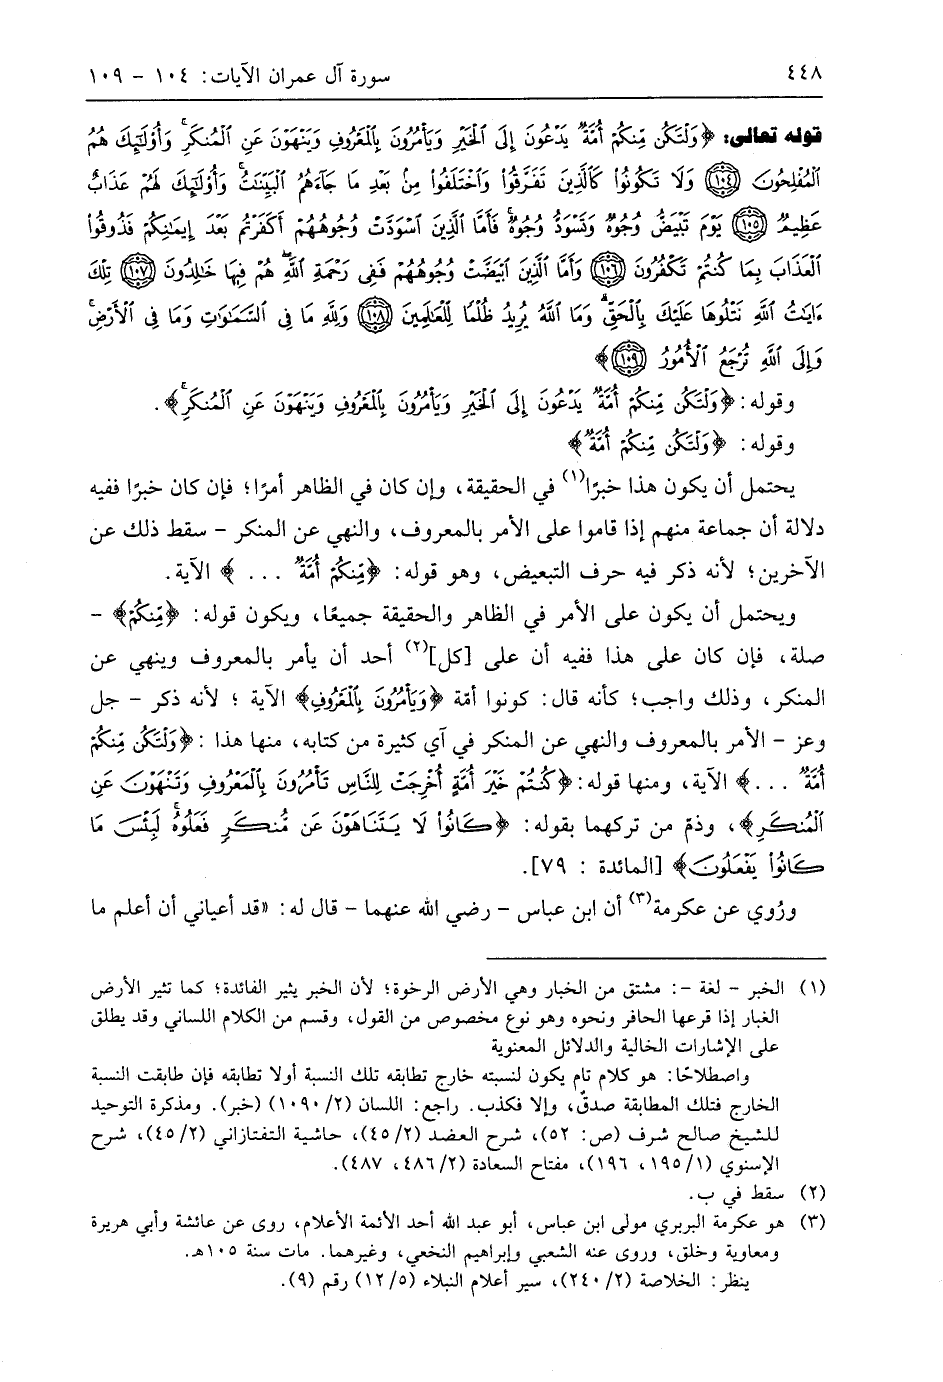 ٤٤٨
سورة آل عمران الآيات: ١٠٤ - ١٠٩
قوله تعالى: ﴿وَلْتَكُن مِّنكُمْ أُمَّةٌ يَدْعُونَ إِلَى الْخَيْرِ وَيَأْمُرُونَ بِالْمَعْرُوفِ وَيَنْهَوْنَ عَنِ الْمُنكَرِ وَأُوْلَٰئِكَ هُمُ
الْمُفْلِحُونَ ١٠٤ وَلَا تَكُونُوا كَالَّذِينَ تَفَرَّقُوا وَاخْتَلَفُوا مِنْ بَعْدِ مَا جَآءَهُمُ الْبَيِّنَٰتُ وَأُوْلَٰئِكَ لَهُمْ عَذَابٌ
عَظِيمٌ ١٠٥ يَوْمَ تَبْيَضُّ وُجُوهٌ وَتَسْوَدُّ وُجُوهٌ فَأَمَّا الَّذِينَ اسْوَدَّتْ وُجُوهُهُمْ أَكَفَرْتُم بَعْدَ إِيمَٰنِكُمْ فَذُوقُوا
الْعَذَابَ بِمَا كُنتُمْ تَكْفُرُونَ ١٠٦ وَأَمَّا الَّذِينَ ابْيَضَّتْ وُجُوهُهُمْ فَفِى رَحْمَةِ اللَّهِ هُمْ فِيهَا خَٰلِدُونَ ١٠٧ تِلْكَ
ءَايَٰتُ اللَّهِ نَتْلُوهَا عَلَيْكَ بِالْحَقِّ وَمَا اللَّهُ يُرِيدُ ظُلْمًا لِّلْعَٰلَمِينَ ١٠٨ وَلِلَّهِ مَا فِى السَّمَٰوَٰتِ وَمَا فِى الْأَرْضِ
وَإِلَى اللَّهِ تُرْجَعُ الْأُمُورُ ١٠٩﴾
وقوله: ﴿وَلْتَكُن مِّنكُمْ أُمَّةٌ يَدْعُونَ إِلَى الْخَيْرِ وَيَأْمُرُونَ بِالْمَعْرُوفِ وَيَنْهَوْنَ عَنِ الْمُنكَرِ﴾.
وقوله: ﴿وَلْتَكُن مِّنكُمْ أُمَّةٌ﴾
يحتمل أن يكون هذا خبرًا(١) في الحقيقة، وإن كان في الظاهر أمرًا؛ فإن كان خبرًا ففيه
دلالة أن جماعة منهم إذا قاموا على الأمر بالمعروف، والنهي عن المنكر - سقط ذلك عن
الآخرين؛ لأنه ذكر فيه حرف التبعيض، وهو قوله: ﴿مِّنكُمْ أُمَّةٌ ...﴾ الآية.
ويحتمل أن يكون على الأمر في الظاهر والحقيقة جميعًا، ويكون قوله: ﴿مِّنكُمْ﴾ -
صلة، فإن كان على هذا ففيه أن على [كل](٢) أحد أن يأمر بالمعروف وينهي عن
المنكر، وذلك واجب؛ كأنه قال: كونوا أمّة ﴿وَيَأْمُرُونَ بِالْمَعْرُوفِ﴾ الآية ؛ لأنه ذكر - جل
وعز - الأمر بالمعروف والنهي عن المنكر في آي كثيرة من كتابه، منها هذا :﴿وَلْتَكُن مِّنكُمْ
أُمَّةٌ ...﴾ الآية، ومنها قوله: ﴿كُنتُمْ خَيْرَ أُمَّةٍ أُخْرِجَتْ لِلنَّاسِ تَأْمُرُونَ بِالْمَعْرُوفِ وَتَنْهَوْنَ عَنِ
الْمُنكَرِ﴾، وذمّ من تركهما بقوله: ﴿كَانُوا لَا يَتَنَاهَوْنَ عَن مُّنكَرٍ فَعَلُوهُ لَبِئْسَ مَا
كَانُوا يَفْعَلُونَ﴾ [المائدة : ٧٩].
ورُوي عن عكرمة(٣) أن ابن عباس - رضي الله عنهما - قال له: «قد أعياني أن أعلم ما
(١) الخبر - لغة -: مشتق من الخبار وهي الأرض الرخوة؛ لأن الخبر يثير الفائدة؛ كما تثير الأرض
الغبار إذا قرعها الحافر ونحوه وهو نوع مخصوص من القول، وقسم من الكلام اللساني وقد يطلق
على الإشارات الخالية والدلائل المعنوية
واصطلاحًا: هو كلام تام يكون لنسبته خارج تطابقه تلك النسبة أولا تطابقه فإن طابقت النسبة
الخارج فتلك المطابقة صدقٌ، وإلا فكذب. راجع: اللسان (٢/ ١٠٩٠) (خبر). ومذكرة التوحيد
للشيخ صالح شرف (ص: ٥٢)، شرح العضد (٢/ ٤٥)، حاشية التفتازاني (٢/ ٤٥)، شرح
الإسنوي (١/ ١٩٥، ١٩٦)، مفتاح السعادة (٢/ ٤٨٦، ٤٨٧).
(٢) سقط في ب.
(٣) هو عكرمة البربري مولى ابن عباس، أبو عبد الله أحد الأئمة الأعلام، روى عن عائشة وأبي هريرة
ومعاوية وخلق، وروى عنه الشعبي وإبراهيم النخعي، وغيرهما. مات سنة ١٠٥هـ.
ينظر: الخلاصة (٢/ ٢٤٠)، سير أعلام النبلاء (٥/ ١٢) رقم (٩).